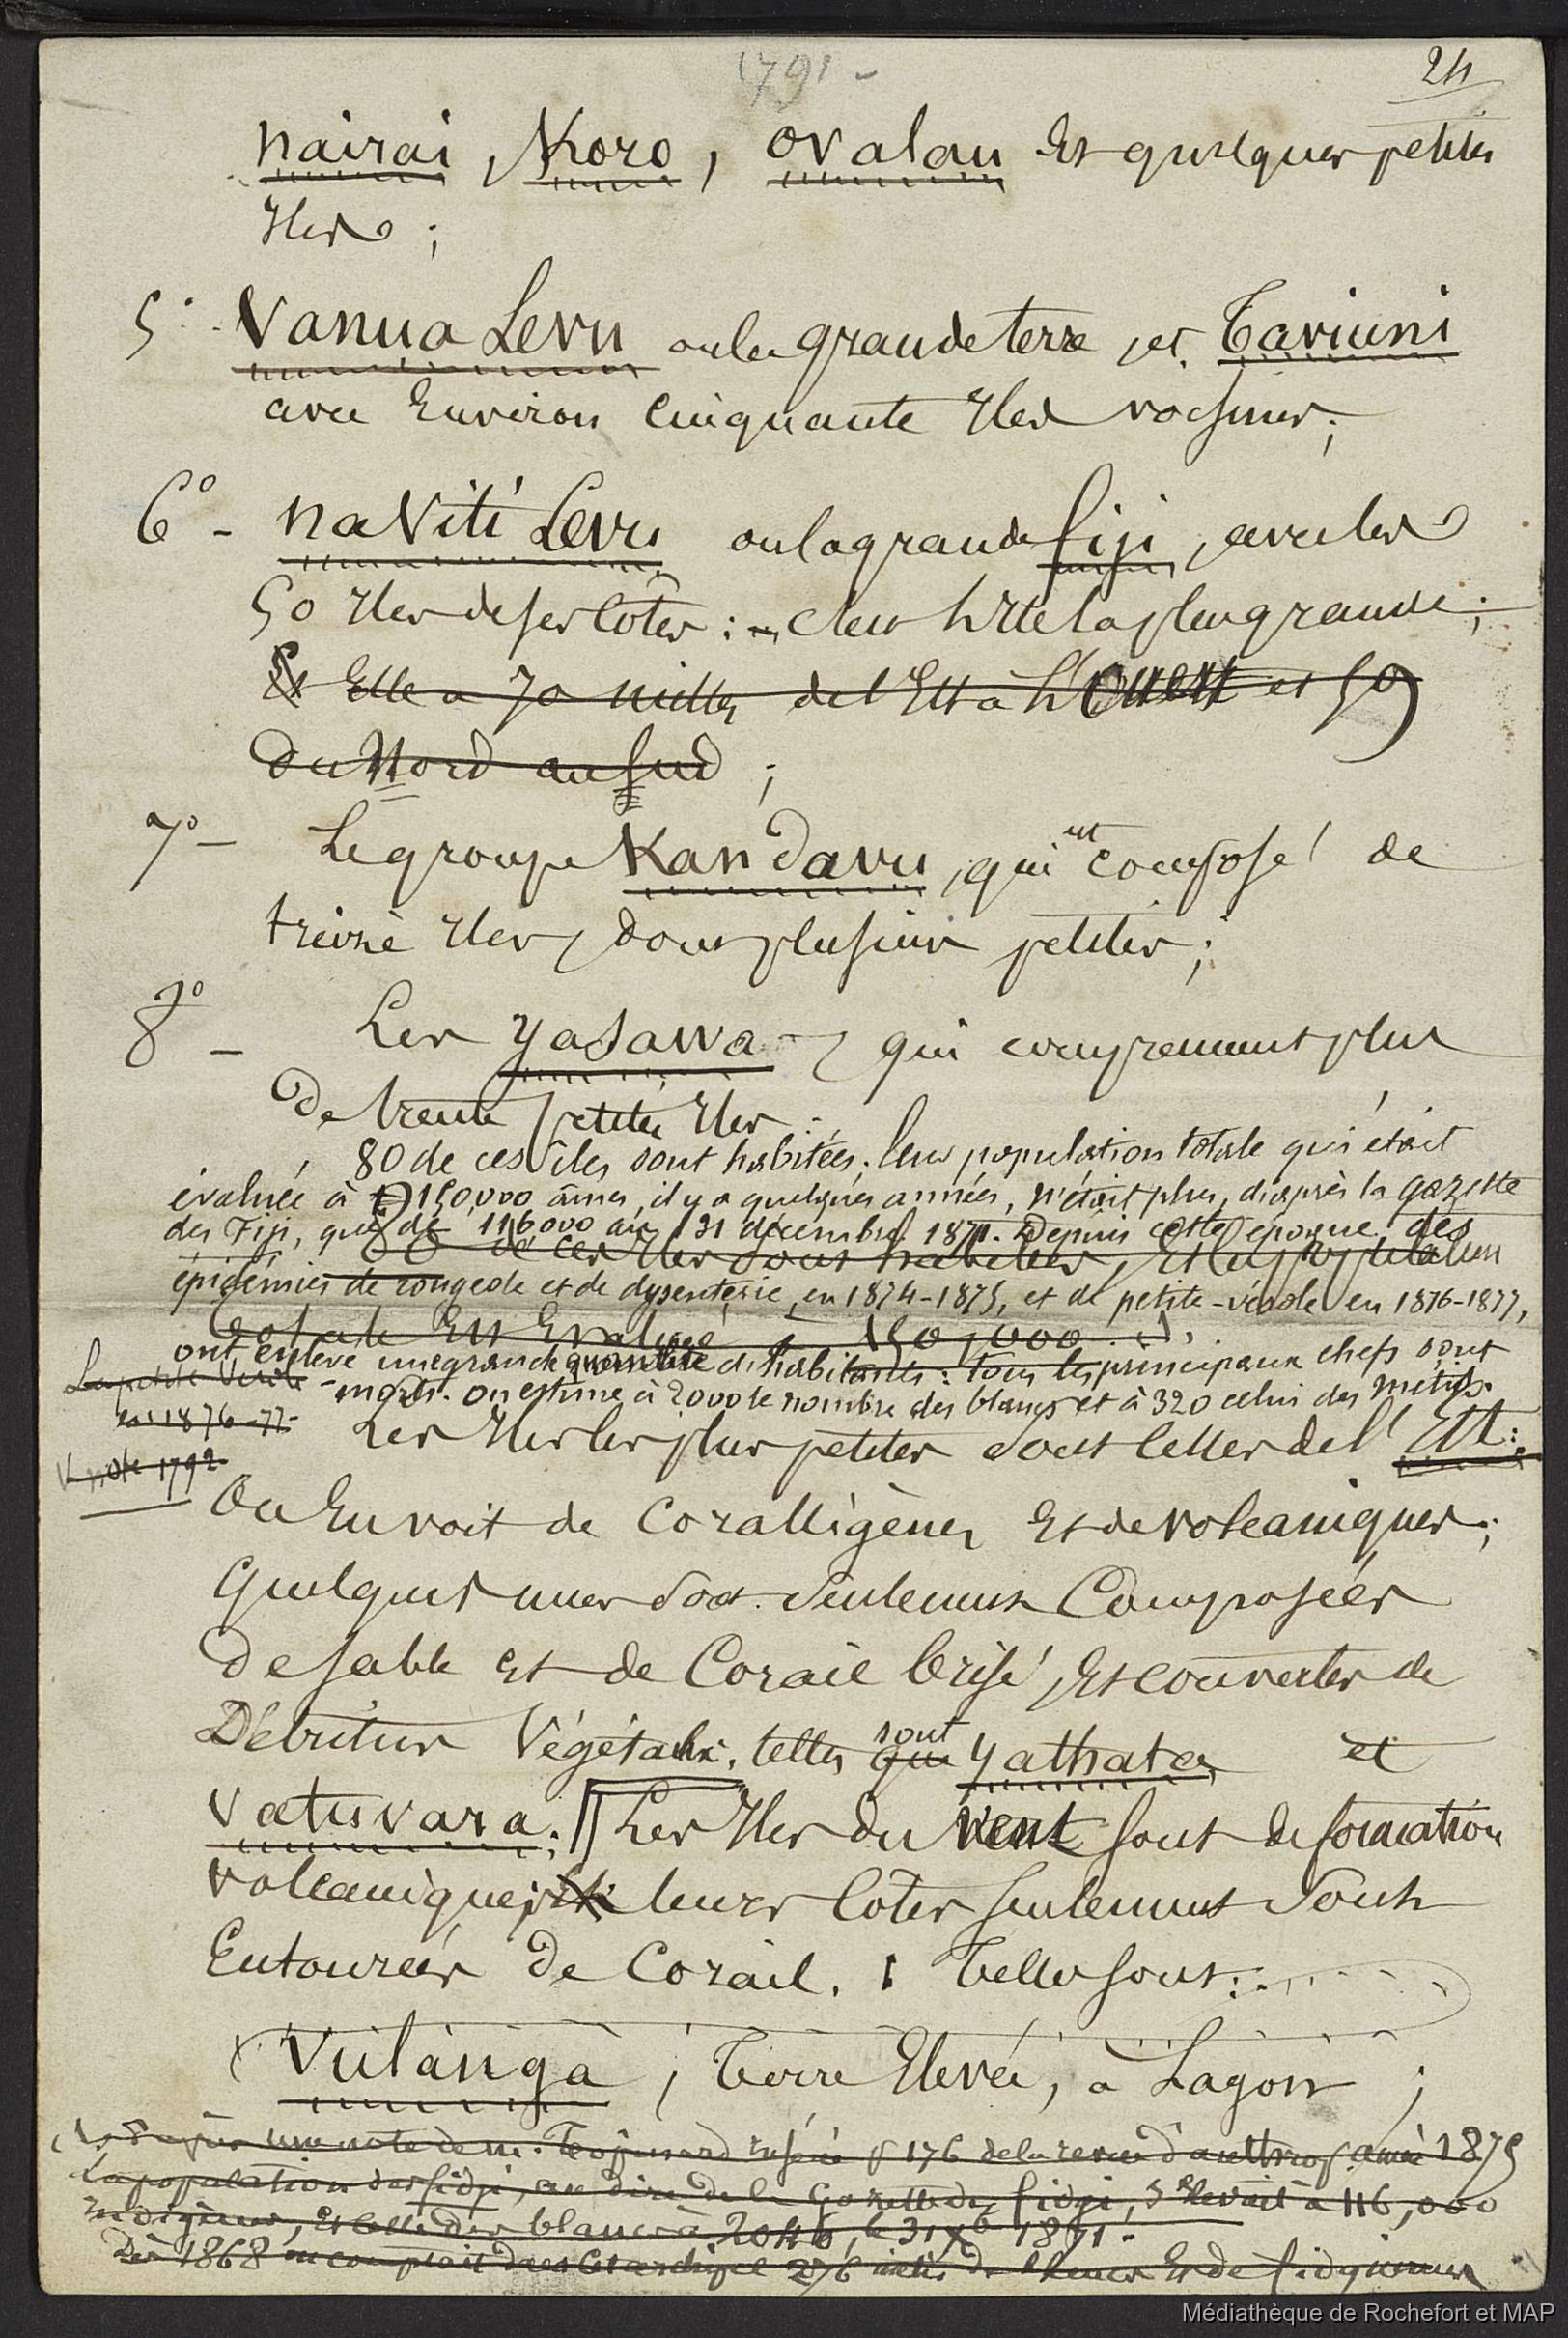 1791 -
24
Nairai, Koro, Ovalau et quelques petites
Iles ;
5° - Vanua Levu ou la grande terre, et Taviuni
avec Environ Cinquante Iles voisines ;
6° - Na Viti Levu ou la grande fiji, avec les
50 Iles de ses Côtes : - c'est l'Ile la plus grande ;
Et Elle a 70 milles de l'Est à l'Ouest et 50
du Nord au sud ;
7° - Le groupe Kandavu, qui est composé de
treize Iles, dont plusieurs petites ;
8° - Les Yasawa, qui comprennent plus
de trente petites Iles ;
80 de ces îles sont habitées ; leur population totale qui était
évaluée à 150,000 âmes, il y a quelques années, n'était plus, d'après la gazette
des Fiji, que de 116000 au 31 décembre 1871. Depuis cette époque, des
80 de ces Iles sont habitées, Et la population
épidémies de rougeole et de dysenterie, en 1874-1875, et de petite-vérole en 1876-1877,
totale Est Evaluée à 150,000
ont enlevé une grande quantité d'habitants : tous les principaux chefs sont
La petite Verole
morts. On estime à 2000 le nombre des blancs et à 320 celui des métis.
en 1876-77-
Les Iles les plus petites sont celles de l'Est :
V. note 1792
On En voit de Coralligènes Et de volcaniques ;
Quelques unes sont seulement Composées
de sable et de Corail brisé, Et couvertes de
Détritus Végétaux, telles que sont Yathata et
Vatuvara. Les Iles du Vent sont de formation
volcanique, leurs Côtes seulement sont
Entourées de Corail. Telles sont :
Vulanga, Terre Elevée, à Lagon ;
une note de M. 176 de la revue d'anthrop. année 1875
la population des fidji, au dire de la Gazette des fidji, s'élevait à 116,000
indigènes, Et celle des blancs à 2046, le 31 Xb 1871.
Dès 1868 on comptait dans cet archipel 276 métis de blancs Et de fidgiennes
Médiathèque de Rochefort et MAP